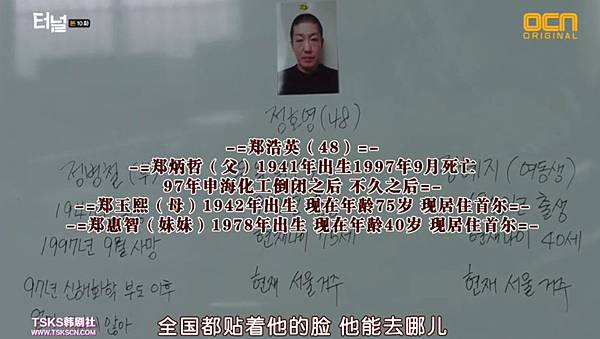 터널 본 10화
OCN
ORIGINAL
정호영(48)
-=郑浩英（48）=-
-=郑炳哲（父）1941年出生1997年9月死亡
97年申海化工倒闭之后 不久之后=-
-=郑玉熙（母）1942年出生 现在年龄75岁 现居住首尔=-
-=郑惠智（妹妹）1978年出生 现在年龄40岁 现居住首尔=-
정병철
(여동생)
출생
1997년 9월 사망
현재나이 75세
40세
97년 신해화학 부도 이후
현재 서울 거주
현재 서울 거주
않아
TSKS韩剧社
www.TSKSCN.COM
全国都贴着他的脸 他能去哪儿